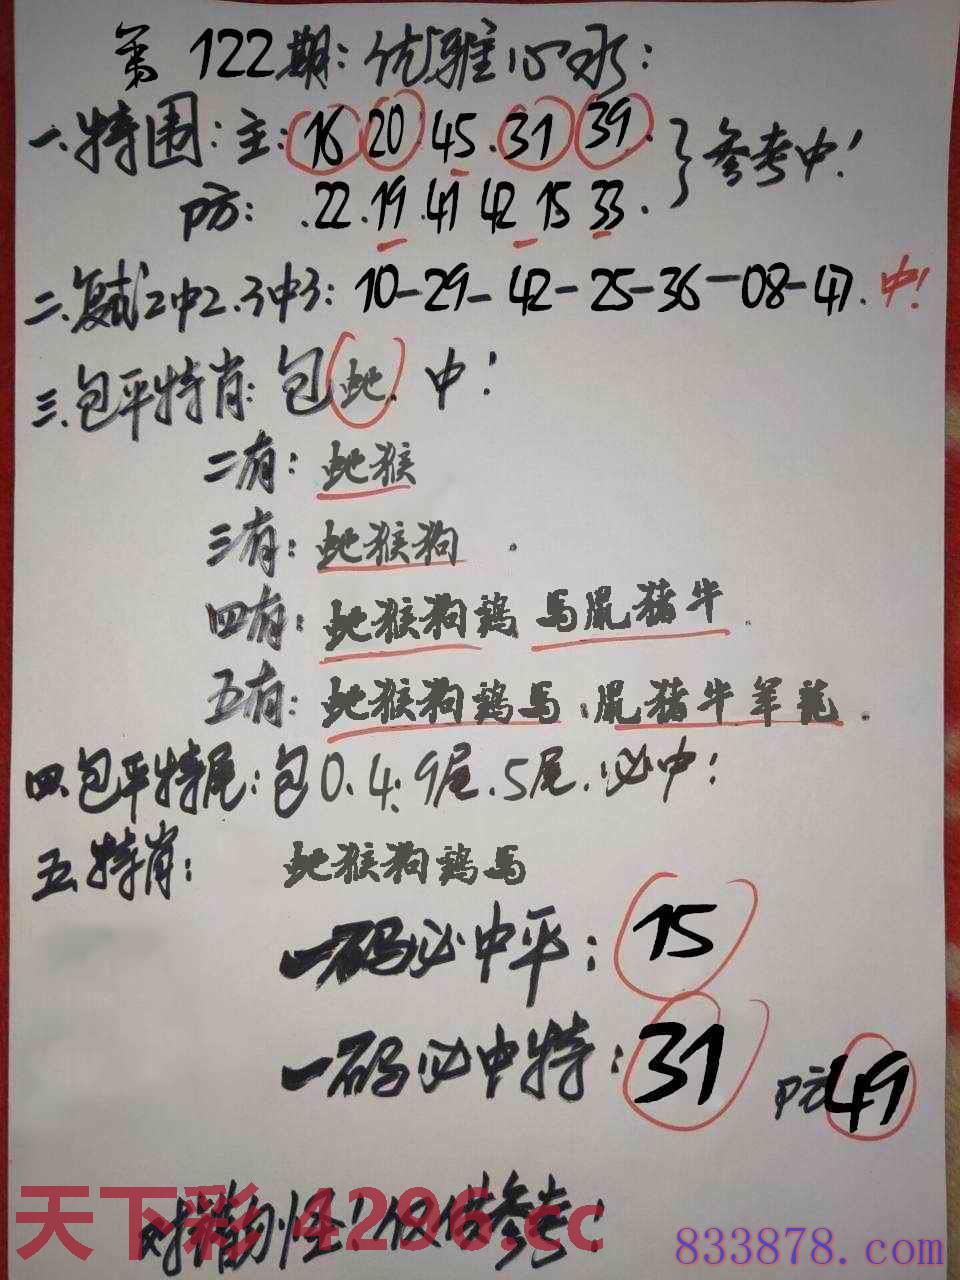 第122期:优雅心水:
一.特围:主:16 20 45.31 39.
防:.22.19.41 42 15 33.
}参考中!
二.复式2中2.3中3:10-29-42-25-36-08-47.中!
三.包平特肖:包蛇.中!
二有:蛇猴
三有:蛇猴狗.
四有:蛇猴狗鸡 马鼠猪牛.
五有:蛇猴狗鸡马.鼠猪牛羊龙.
四.包平特尾:包0.4.9尾.5尾.必中!
五.特肖: 蛇猴狗鸡马
一码必中平:15
一码必中特:31 防49
对错勿怪!仅供参考!
天下彩 4296.cc
833878.com